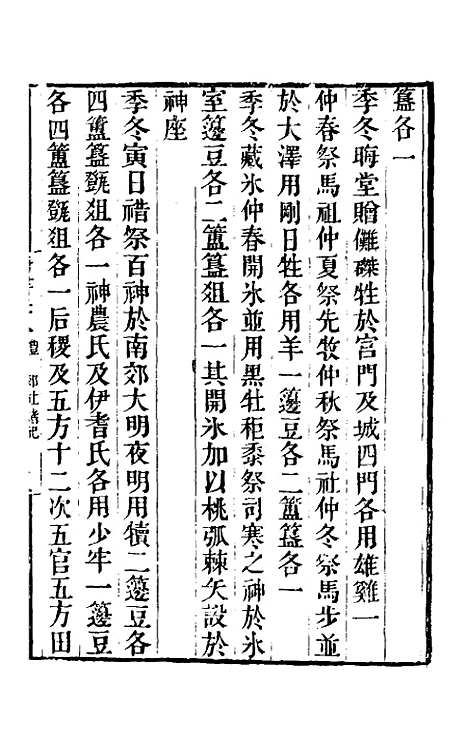 簋各一
季冬晦堂贈儺磔牲於宮門及城四門各用雄雞一
仲春祭馬祖仲夏祭先牧仲秋祭馬社仲冬祭馬步並
於大澤用剛日牲各用羊一籩豆各二簠簋各一
季冬藏氷仲春開氷並用黑牡秬黍祭司寒之神於氷
室籩豆各二簠簋俎各一其開氷加以桃弧棘矢設於
神座
季冬寅日禇祭百神於南郊大明夜明用犢二籩豆各
四簠簋㽅俎各一神農氏及伊耆氏各用少牢一籩豆
各四簠簋㽅俎各一后稷及五方十二次五官五方田
禮 郊社諸祀